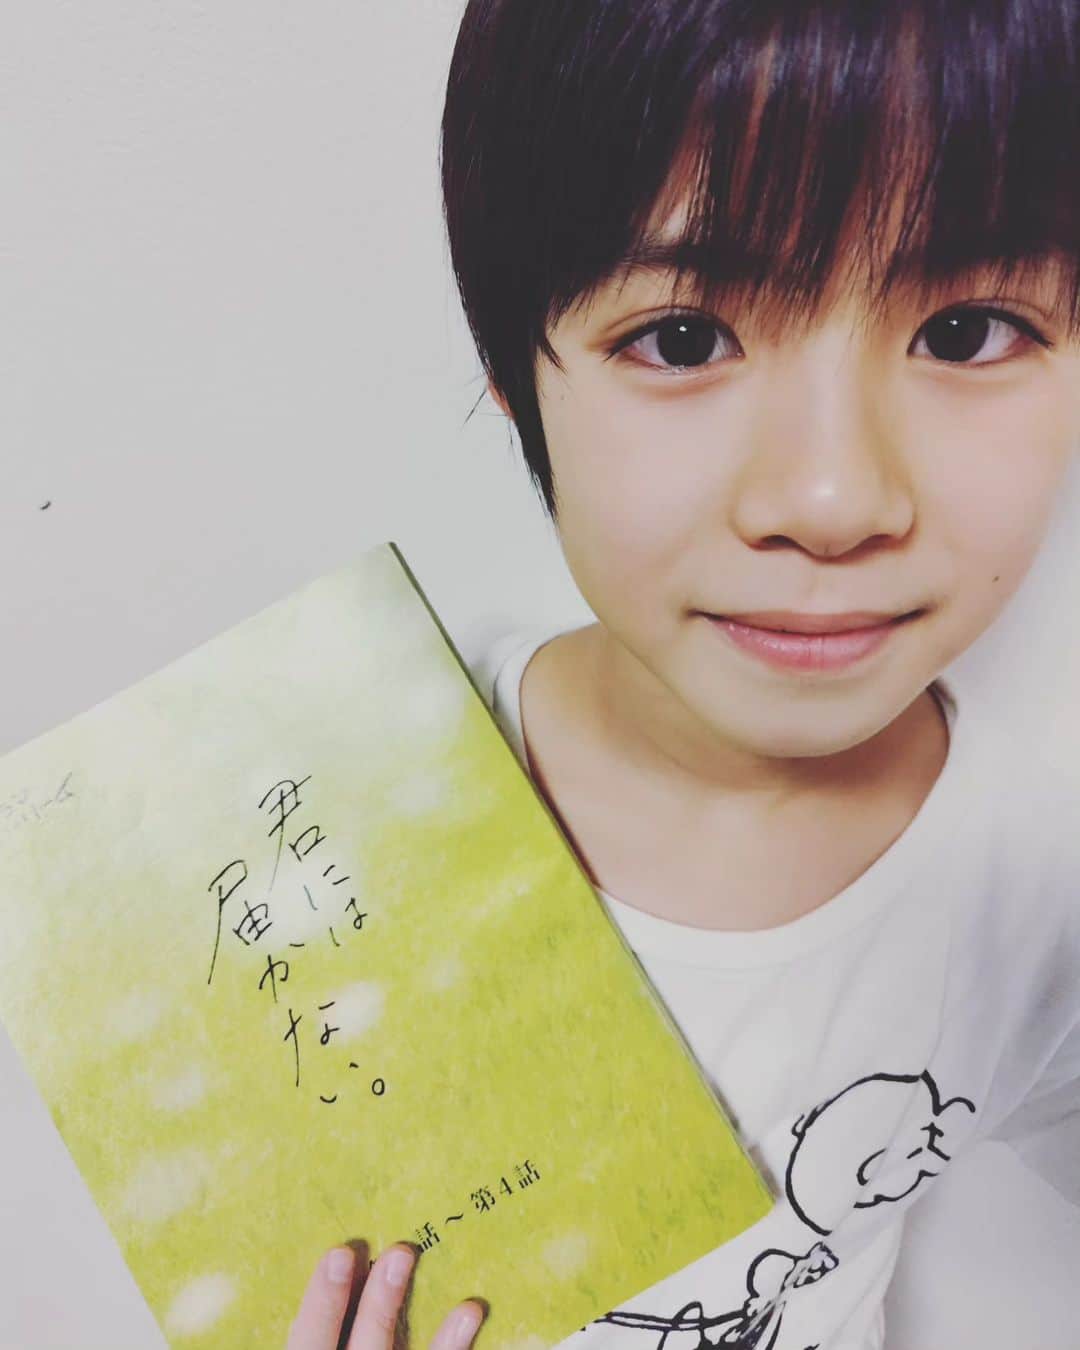 君には
届かない。
話～第4話